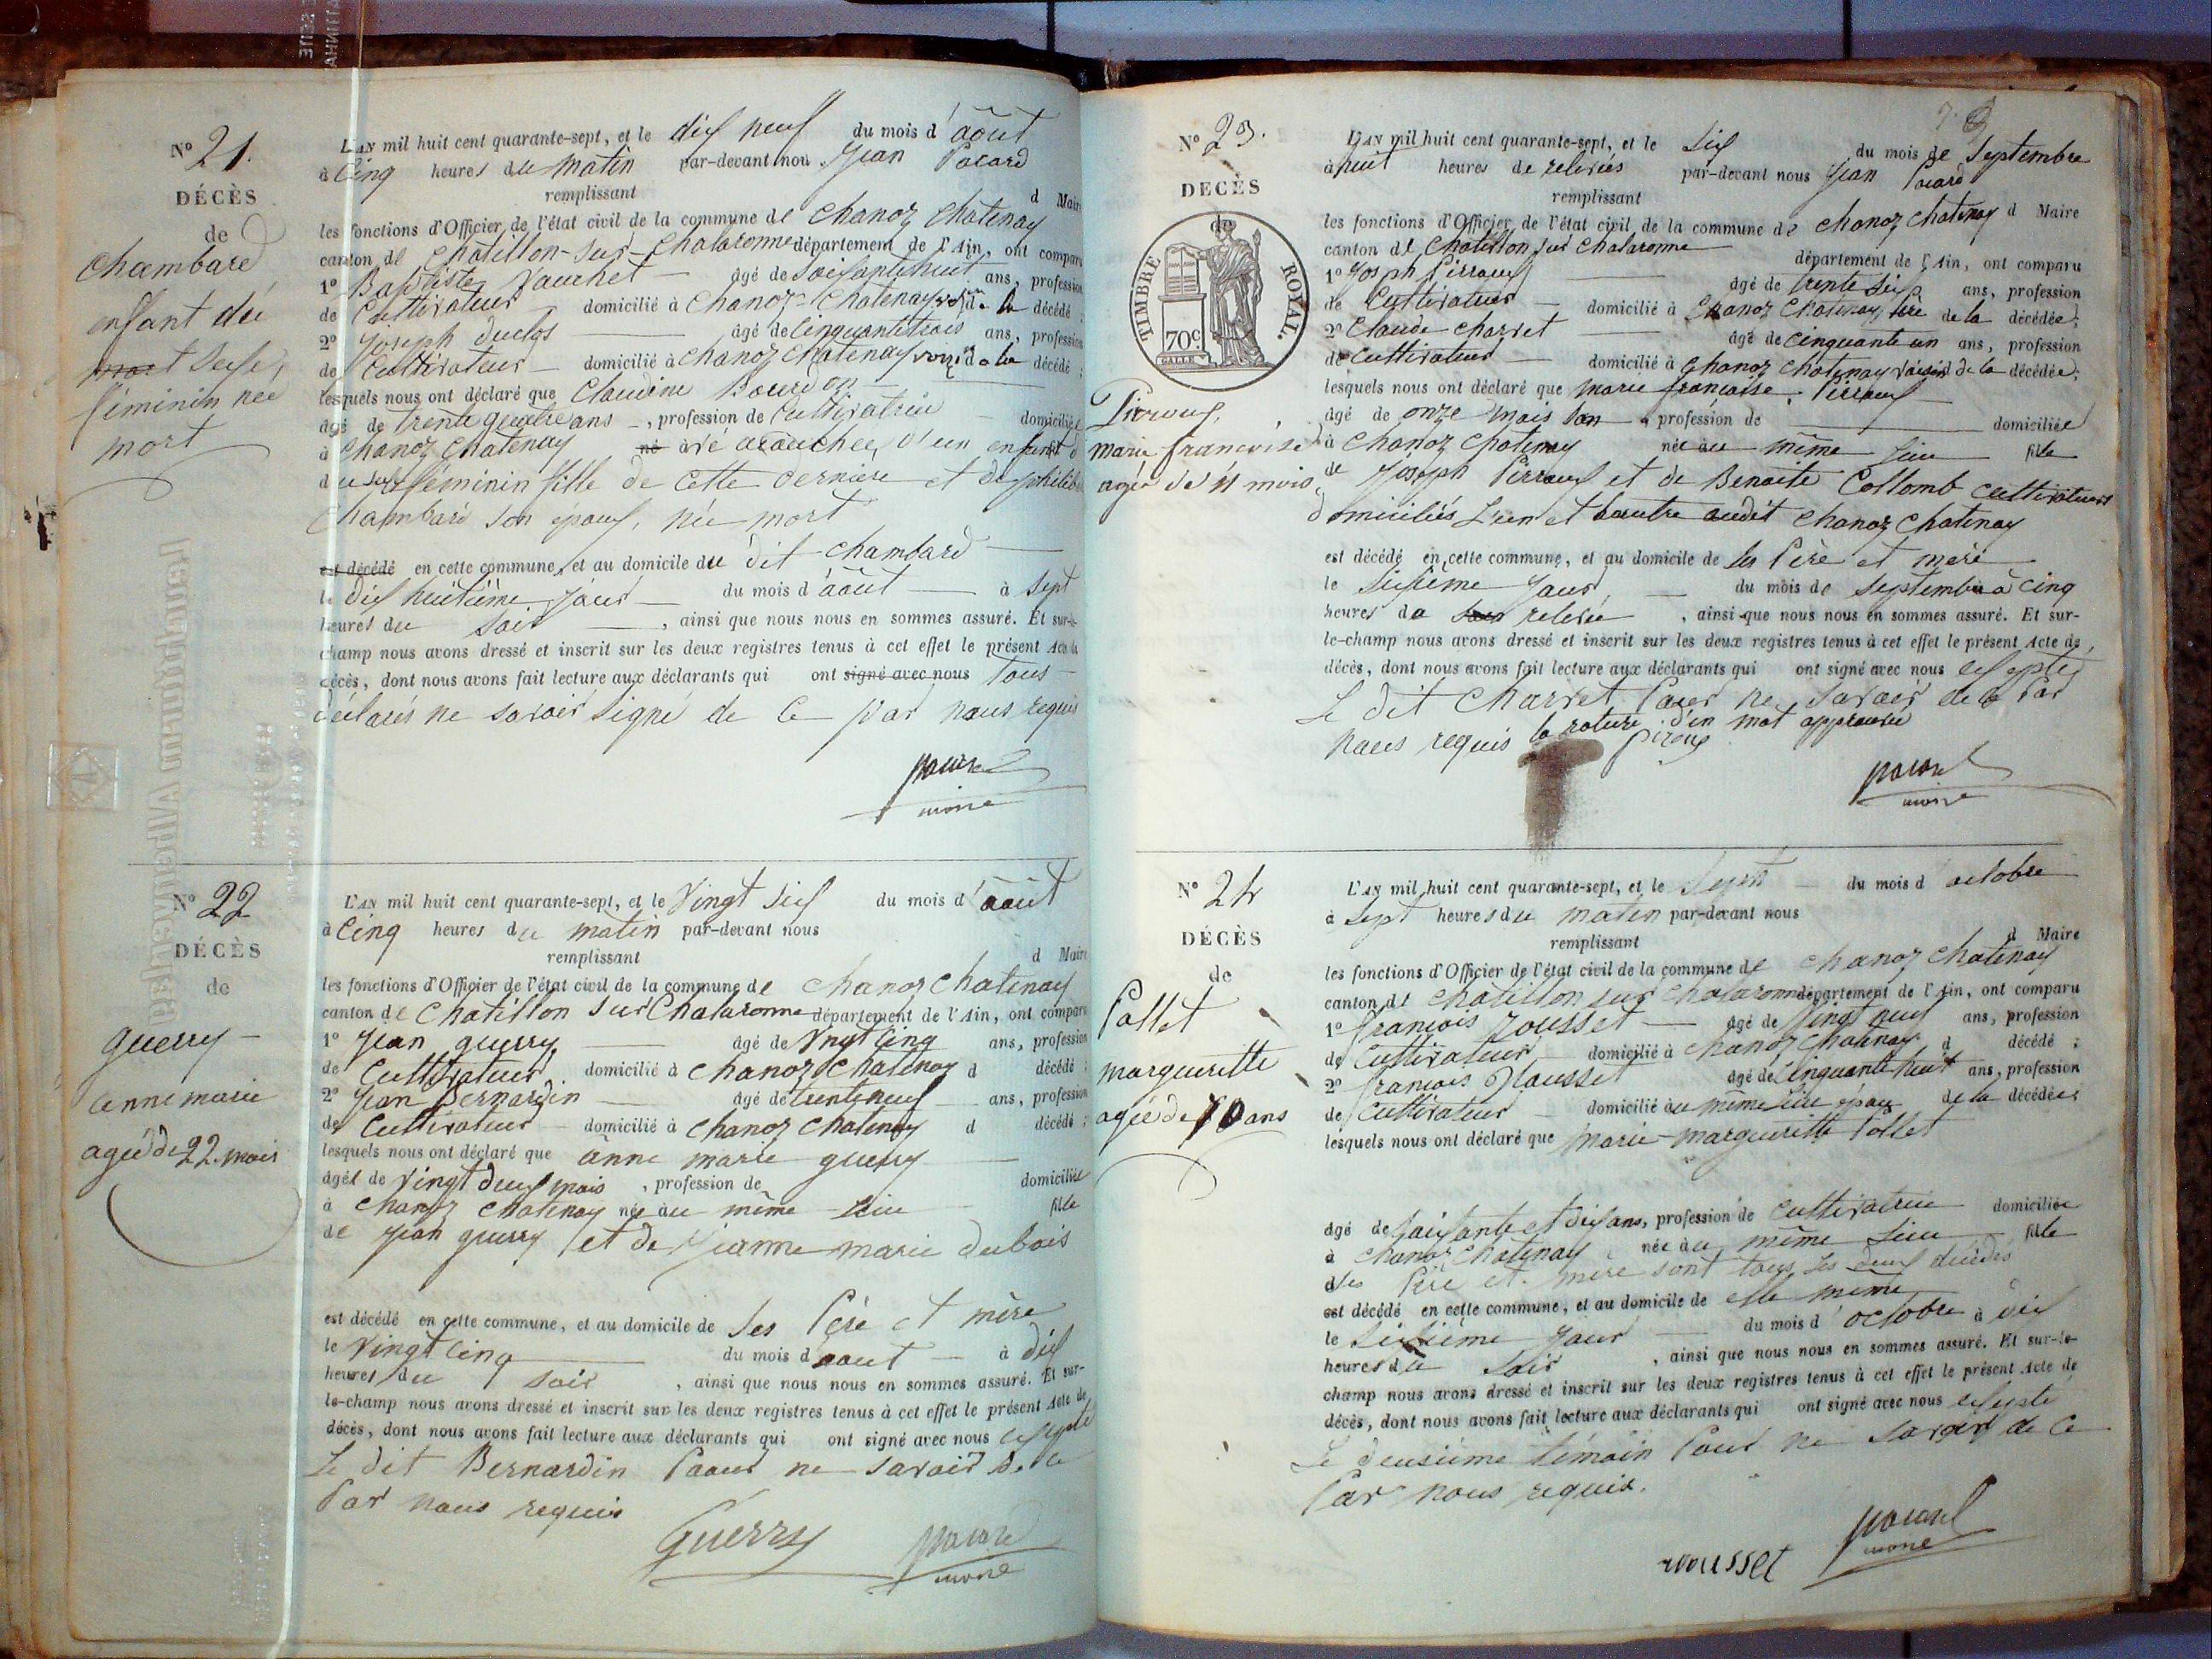 N° 21.
DÉCÈS
de
Chambard
enfant du
mort sexe
féminin née
mort
L'AN mil huit cent quarante-sept, et le dix neuf du mois d'août
à Cinq heures du matin par-devant nou Jean Pocard
remplissant d Maire
les fonctions d'Officier de l'état civil de la commune de Chanoz Chatenay
canton de Châtillon-sur-Chalaronne département de l'Ain, ont comparu
1° Baptiste Vauchet âgé de Soixante huit ans, profession
de Cultivateur domicilié à Chanoz-Chatenay de la décédé ;
2° Joseph Duclos âgé de Cinquante trois ans, profession
de Cultivateur domicilié à Chanoz Chatenay de la décédé ;
lesquels nous ont déclaré que Claudine Bourdon
âgé de trente quatre ans, profession de Cultivatrice domiciliée
à Chanoz Chatenay né à est accouchée d'un enfant
du sexe féminin fille de cette dernière et de philibert
Chambard son époux, née mort
est décédé en cette commune, et au domicile du dit Chambard
le dix huitième jour du mois d'août à sept
heures du soir, ainsi que nous nous en sommes assuré. Et sur-le-
champ nous avons dressé et inscrit sur les deux registres tenus à cet effet le présent Acte de
décès, dont nous avons fait lecture aux déclarants qui ont signé avec nous tous
déclarés ne savoir signé de ce par nous requis
pocard
maire
N° 22
DÉCÈS
de
guerry
anne marie
agée de 22 mois
L'AN mil huit cent quarante-sept, et le Vingt six du mois d'août
à Cinq heures du matin par-devant nous
remplissant d Maire
les fonctions d'Officier de l'état civil de la commune de Chanoz Chatenay
canton de Chatillon sur Chalaronne département de l'Ain, ont comparu
1° Jean guerry âgé de Vingt Cinq ans, profession
de Cultivateur domicilié à Chanoz Chatenay d décédé ;
2° Jean Bernardin âgé de trente neuf ans, profession
de Cultivateur domicilié à Chanoz Chatenay d décédé ;
lesquels nous ont déclaré que anne marie guerry
âgée de Vingt deux mois, profession de domiciliée
à Chanoz Chatenay née au même Lieu fille
de Jean guerry et de Jeanne marie dubois
est décédé en cette commune, et au domicile de ses Père et mère
le Vingt Cinq du mois d'aout à dix
heures du soir, ainsi que nous nous en sommes assuré. Et sur-
le-champ nous avons dressé et inscrit sur les deux registres tenus à cet effet le présent Acte de
décès, dont nous avons fait lecture aux déclarants qui ont signé avec nous excepté
Le dit Bernardin Pour ne savoir de ce
Par nous requis
Guerry pocard
maire
N° 23.
DECÈS
de
TIMBRE ROYAL.
70c.
Piroux,
marie francoise
agée de 11 mois
L'AN mil huit cent quarante-sept, et le six du mois de Septembre
à huit heures de relevées par-devant nous Jean Pocard
remplissant d Maire
les fonctions d'Officier de l'état civil de la commune de Chanoz Chatenay
canton de Chatillon sur Chalaronne département de l'Ain, ont comparu
1° Joseph Pirroux âgé de trente six ans, profession
de Cultivateur domicilié à Chanoz Chatenay père de la décédée ;
2° Claude Charvet âgé de Cinquante un ans, profession
de Cultivateur domicilié à Chanoz Chatenay Voisin de la décédée ;
lesquels nous ont déclaré que marie francoise Pirroux
âgé de onze mois, profession de domiciliée
à Chanoz Chatenay née au même lieu fille
de Joseph Pirroux et de Benoite Collomb Cultivateurs
domiciliés L'un et l'autre audit Chanoz Chatenay
est décédé en cette commune, et au domicile de ses Père et mère
le sixième Jour du mois de septembre à Cinq
heures de relevée, ainsi que nous nous en sommes assuré. Et sur-
le-champ nous avons dressé et inscrit sur les deux registres tenus à cet effet le présent Acte de
décès, dont nous avons fait lecture aux déclarants qui ont signé avec nous excepté
Le dit Charvet Pour ne savoir de ce Par
nous requis la rature d'un mot approuvée
Piroux
pocard
maire
N° 24
DÉCÈS
de
Pollet
margueritte
agée de 70 ans
L'AN mil huit cent quarante-sept, et le Sept du mois d octobre
à Sept heures du matin par-devant nous
remplissant d Maire
les fonctions d'Officier de l'état civil de la commune de Chanoz Chatenay
canton de Châtillon sur Chalaronne département de l'Ain, ont comparu
1° françois rousset âgé de Vingt neuf ans, profession
de Cultivateur domicilié à Chanoz Chatenay d décédé ;
2° francois Rousset âgé de Cinquante huit ans, profession
de Cultivateur domicilié au même lieu époux de la décédée ;
lesquels nous ont déclaré que marie-marguerite Pollet
âgé de Soixante et dix ans, profession de Cultivatrice domiciliée
à Chanoz Chatenay née au même Lieu fille
des Père et mère sont tous les deux décédés
est décédé en cette commune, et au domicile de elle même
le sixième jour du mois d'octobre à dix
heures du soir, ainsi que nous nous en sommes assuré. Et sur-le-
champ nous avons dressé et inscrit sur les deux registres tenus à cet effet le présent Acte de
décès, dont nous avons fait lecture aux déclarants qui ont signé avec nous excepté
Le deuxième témoin Pour ne savoir de ce
Par nous requis.
rousset pocard
maire